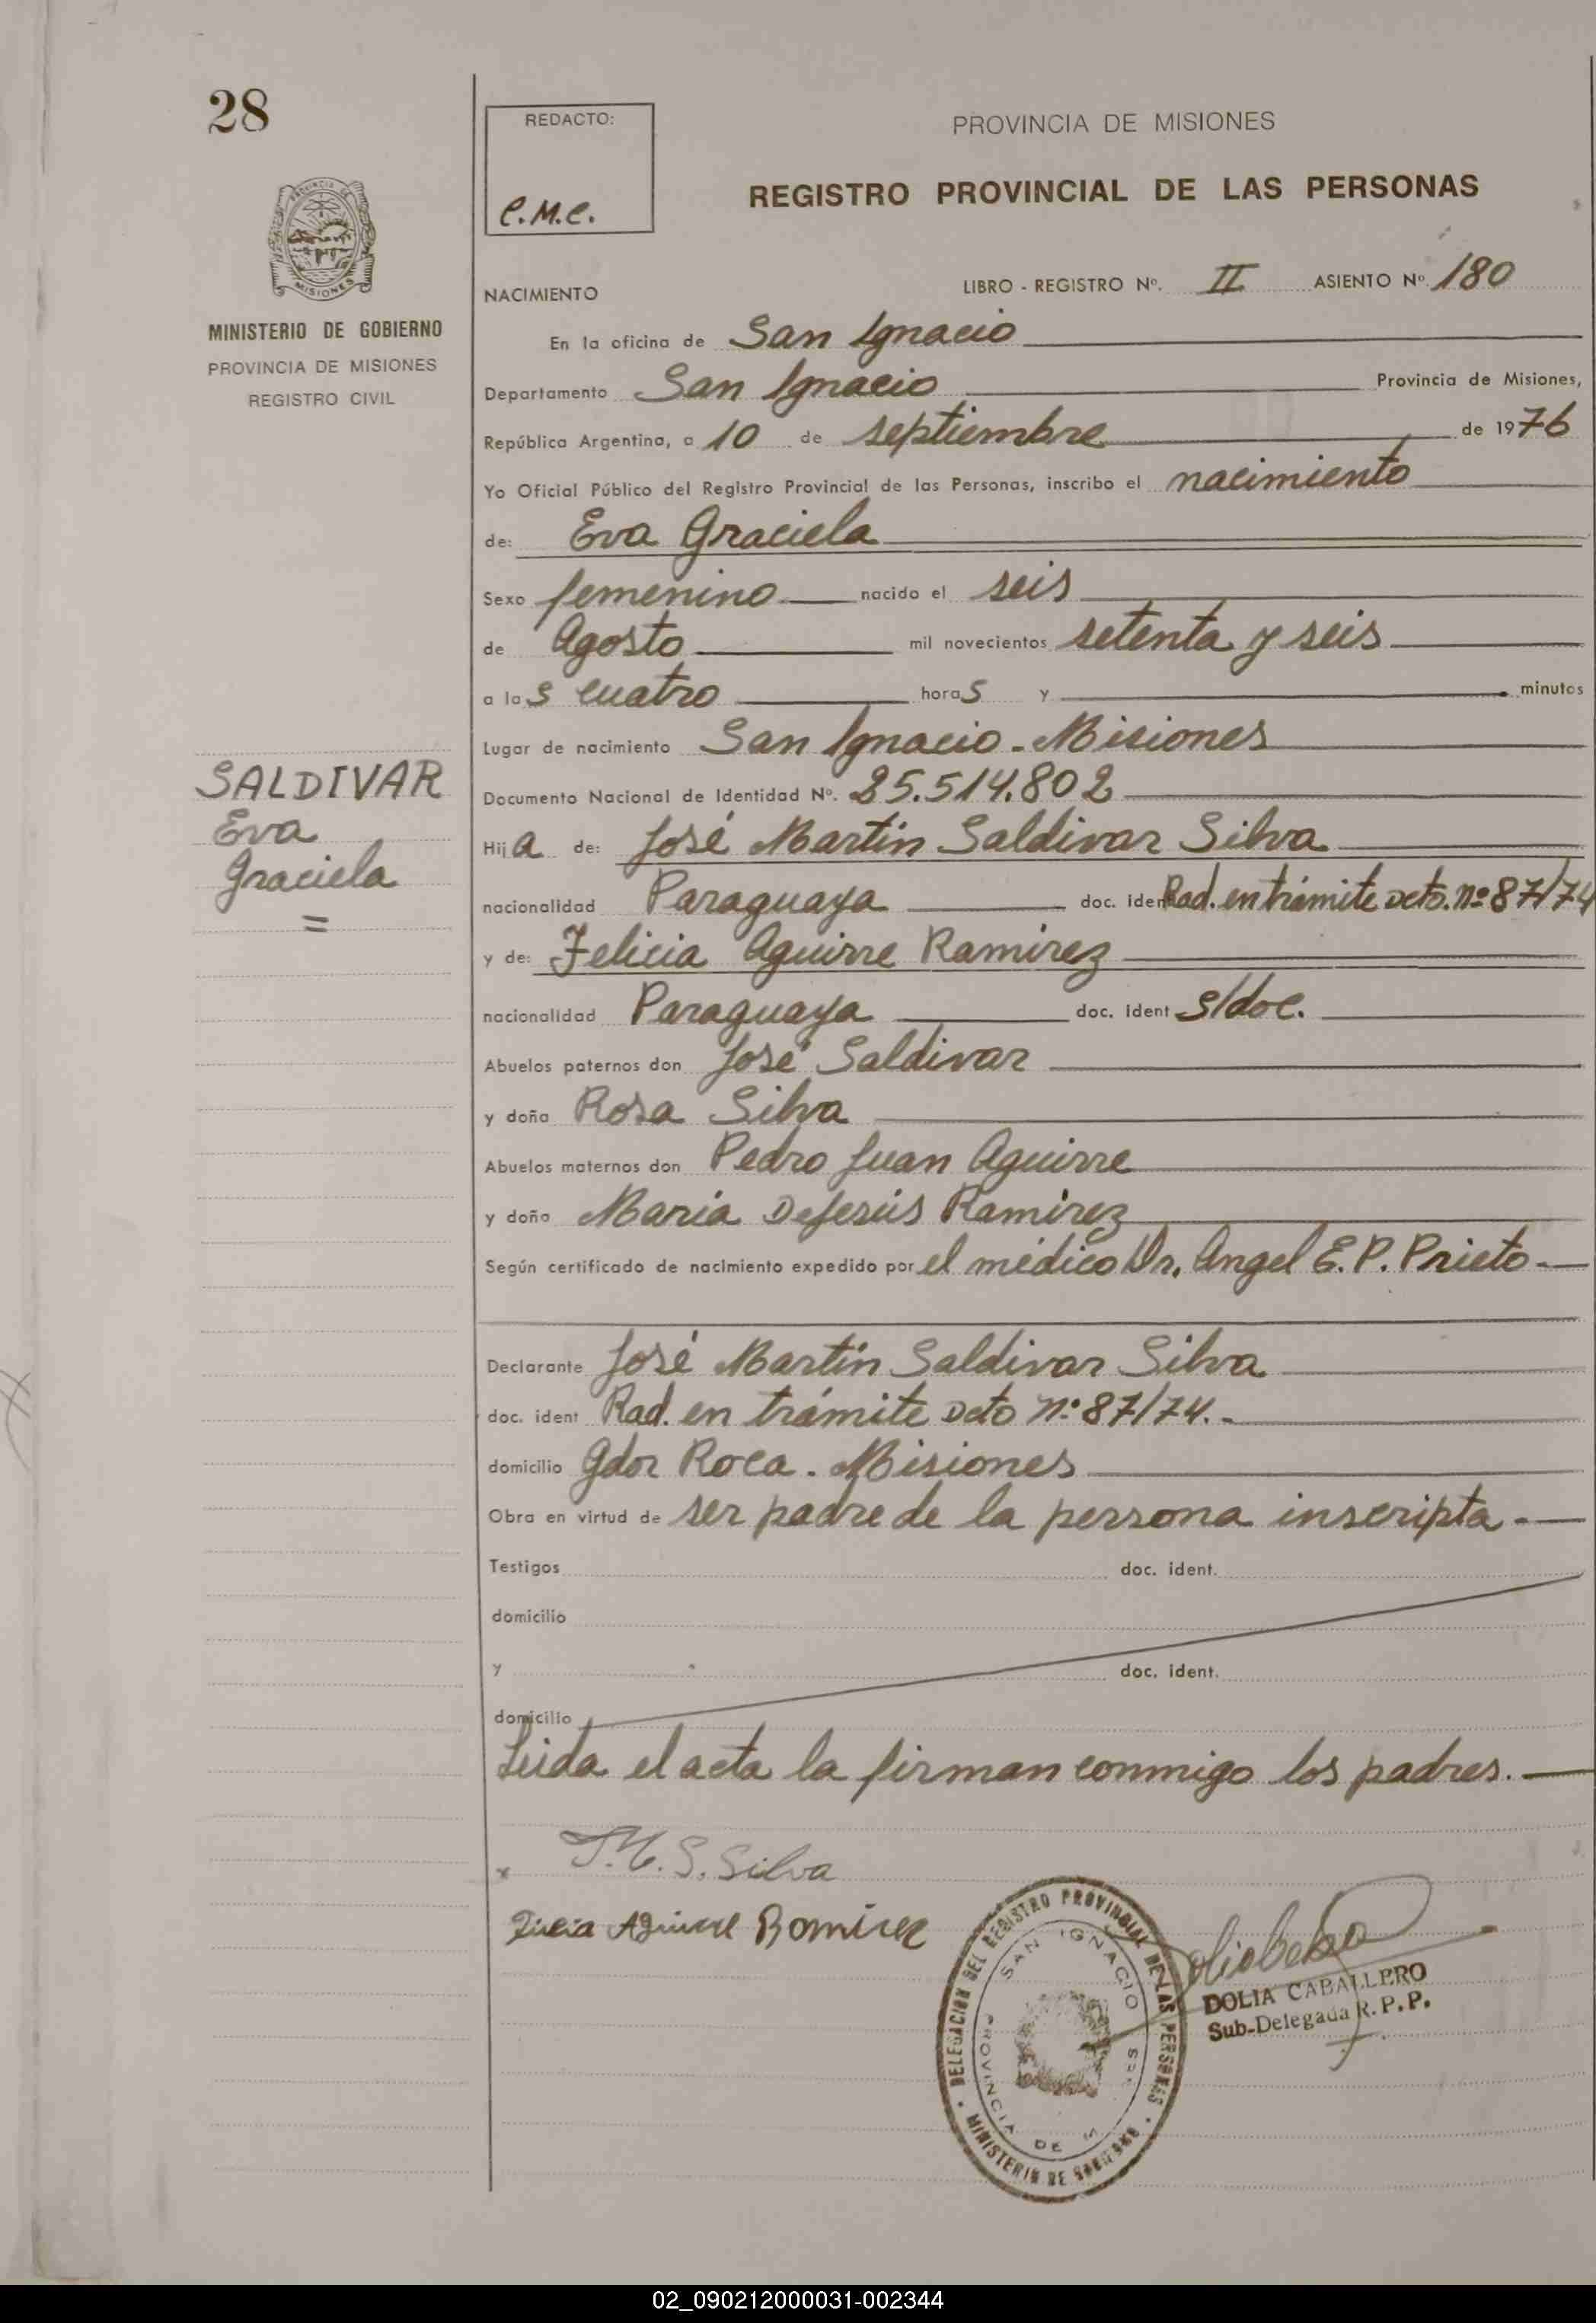 28
REDACTO:
C.M.C.
PROVINCIA DE MISIONES
REGISTRO PROVINCIAL DE LAS PERSONAS
MISIONES
MINISTERIO DE GOBIERNO
PROVINCIA DE MISIONES
REGISTRO CIVIL
NACIMIENTO
LIBRO - REGISTRO Nº. II ASIENTO Nº. 180
En la oficina de San Ignacio
Departamento San Ignacio Provincia de Misiones,
República Argentina, a 10 de septiembre de 1976
Yo Oficial Público del Registro Provincial de las Personas, inscribo el nacimiento
de: Eva Graciela
Sexo femenino nacido el seis
de Agosto mil novecientos setenta y seis
a las cuatro horas y minutos
Lugar de nacimiento San Ignacio - Misiones
SALDIVAR
Eva
Graciela
=
Documento Nacional de Identidad Nº. 25.514.802
Hija de: José Martín Saldivar Silva
nacionalidad Paraguaya doc. ident Rad. en trámite Dcto. nº 87/74
y de: Felicia Aguirre Ramírez
nacionalidad Paraguaya doc. ident s/doc.
Abuelos paternos don José Saldivar
y doña Rosa Silva
Abuelos maternos don Pedro Juan Aguirre
y doña María DeJesús Ramírez
Según certificado de nacimiento expedido por el médico Dr. Angel E.P. Prieto.-
Declarante José Martín Saldivar Silva
doc. ident Rad. en trámite Dcto nº 87/74.-
domicilio Gdor Roca. Misiones
Obra en virtud de ser padre de la persona inscripta.-
Testigos doc. ident.
domicilio
y doc. ident.
domicilio
Leida el acta la firman conmigo los padres.-
J.M.S. Silva
Aguirre Ramirez
DELEGACION DEL REGISTRO PROVINCIAL DE LAS PERSONAS
SAN IGNACIO
PROVINCIA DE
MINISTERIO DE GOBIERNO
DOLIA CABALLERO
Sub-Delegada R.P.P.
02_090212000031-002344